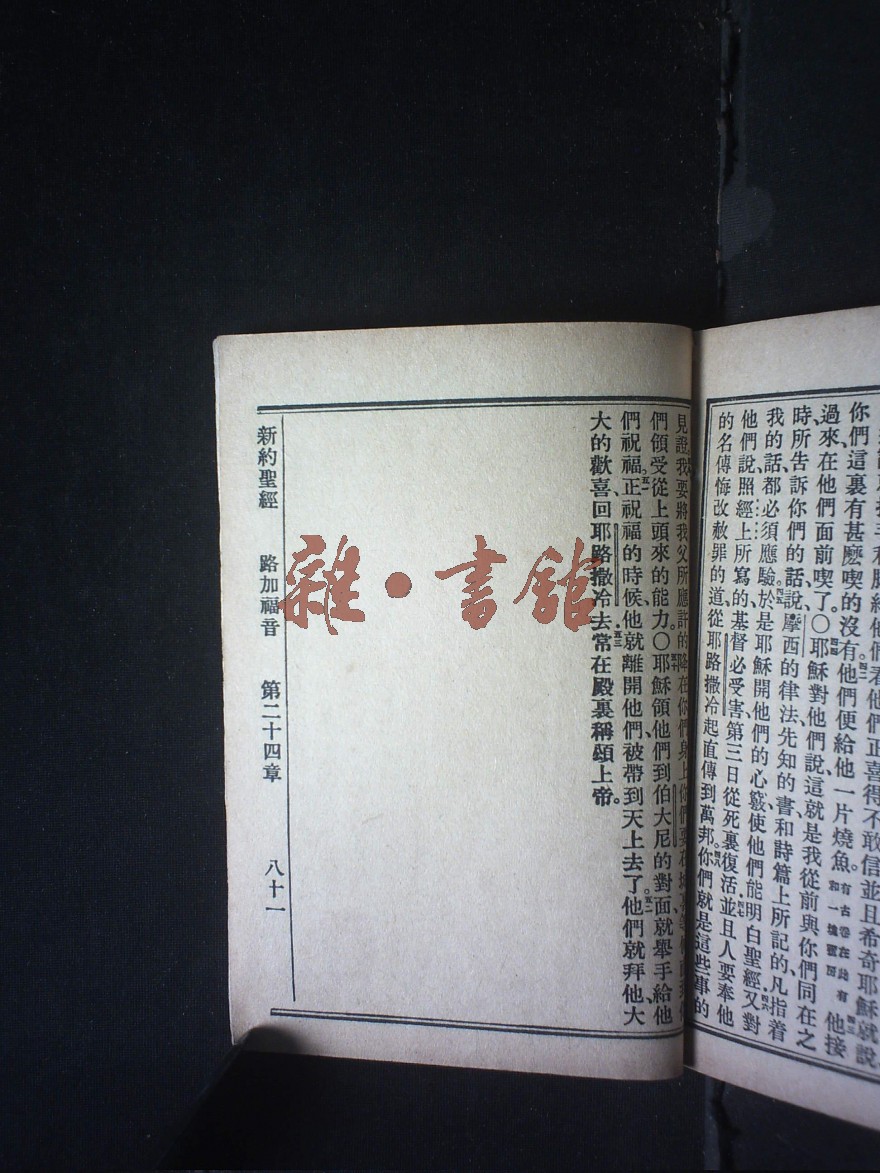 手和腳給他們看他們正喜得不敢信並且希奇耶穌就說、
你們這裏有甚麽喫的沒有。四二他們便給他一片燒魚。有古卷在此有和一塊蜜房四三他接
過來、在他們面前喫了。〇四四耶穌對他們說、這就是我從前與你們同在之
時、所告訴你們的話、說、摩西的律法、先知的書、和詩篇上所記的、凡指着
我的話、都必須應驗。四五於是耶穌開他們的心竅、使他們能明白聖經。四六又對
他們說、照經上所寫的、基督必受害、第三日從死裏復活。四七並且人要奉他
的名傳悔改赦罪的道、從耶路撒冷起直傳到萬邦。四八你們就是這些事的
見證。我要將我父所應許的降在你們身上。你們要在城裏等候、直到你
們領受從上頭來的能力。〇五十耶穌領他們到伯大尼的對面、就舉手給他
們祝福。五一正祝福的時候、他就離開他們、被帶到天上去了。五二他們就拜他、大
大的歡喜、回耶路撒冷去。五三常在殿裏稱頌上帝。
新約聖經 路加福音 第二十四章 八十一
雜·書館